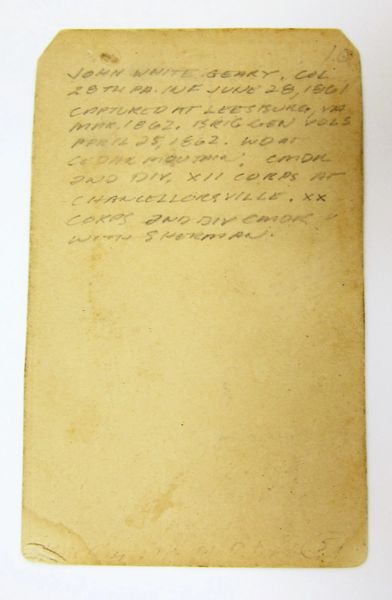 JOHN WHITE GEARY. COL
28TH PA. INF JUNE 28, 1861
CAPTURED AT LEESBURG, VA
MAR, 1862. BRIG GEN VOLS
APRIL 25, 1862. WD AT
CEDAR MOUNTAIN. CMDR
2ND DIV, XII CORPS AT
CHANCELLORSVILLE. XX
CORPS 2ND DIV CMDR
WITH SHERMAN.